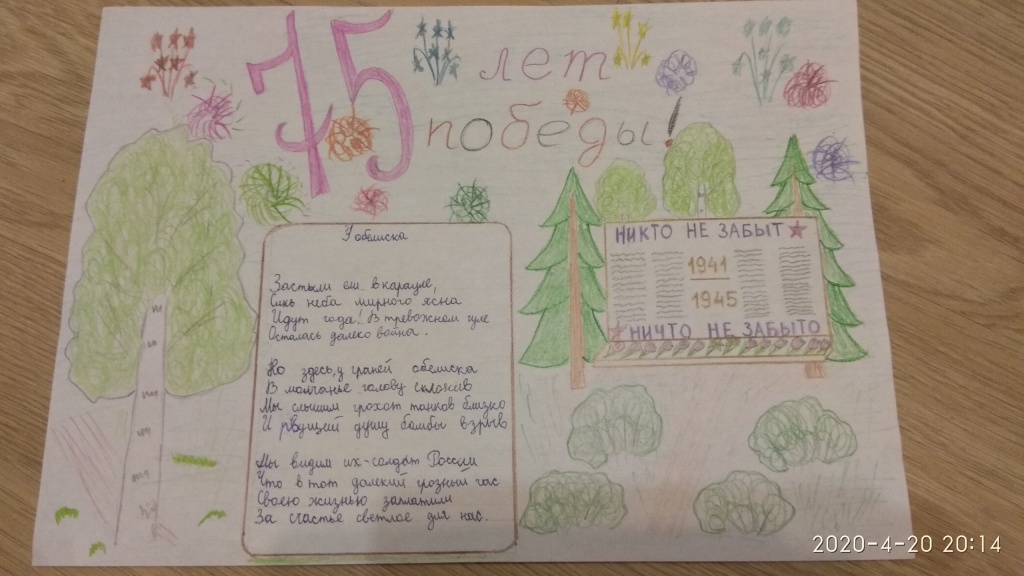 75 лет
победы!
У обелиска
Застыли ели в карауле,
Синь неба мирного ясна
Идут года! В тревожном гуле
Осталась далеко война.
Но здесь, у граней обелиска
В молчанье голову склонив
Мы слышим грохот танков близко
И рвущий душу бомбы взрыв
Мы видим их-солдат России
Что в тот далекий грозный час
Своею жизнью заплатили
За счастье светлое для нас.
НИКТО НЕ ЗАБЫТ
1941
1945
НИЧТО НЕ ЗАБЫТО
2020-4-20 20:14